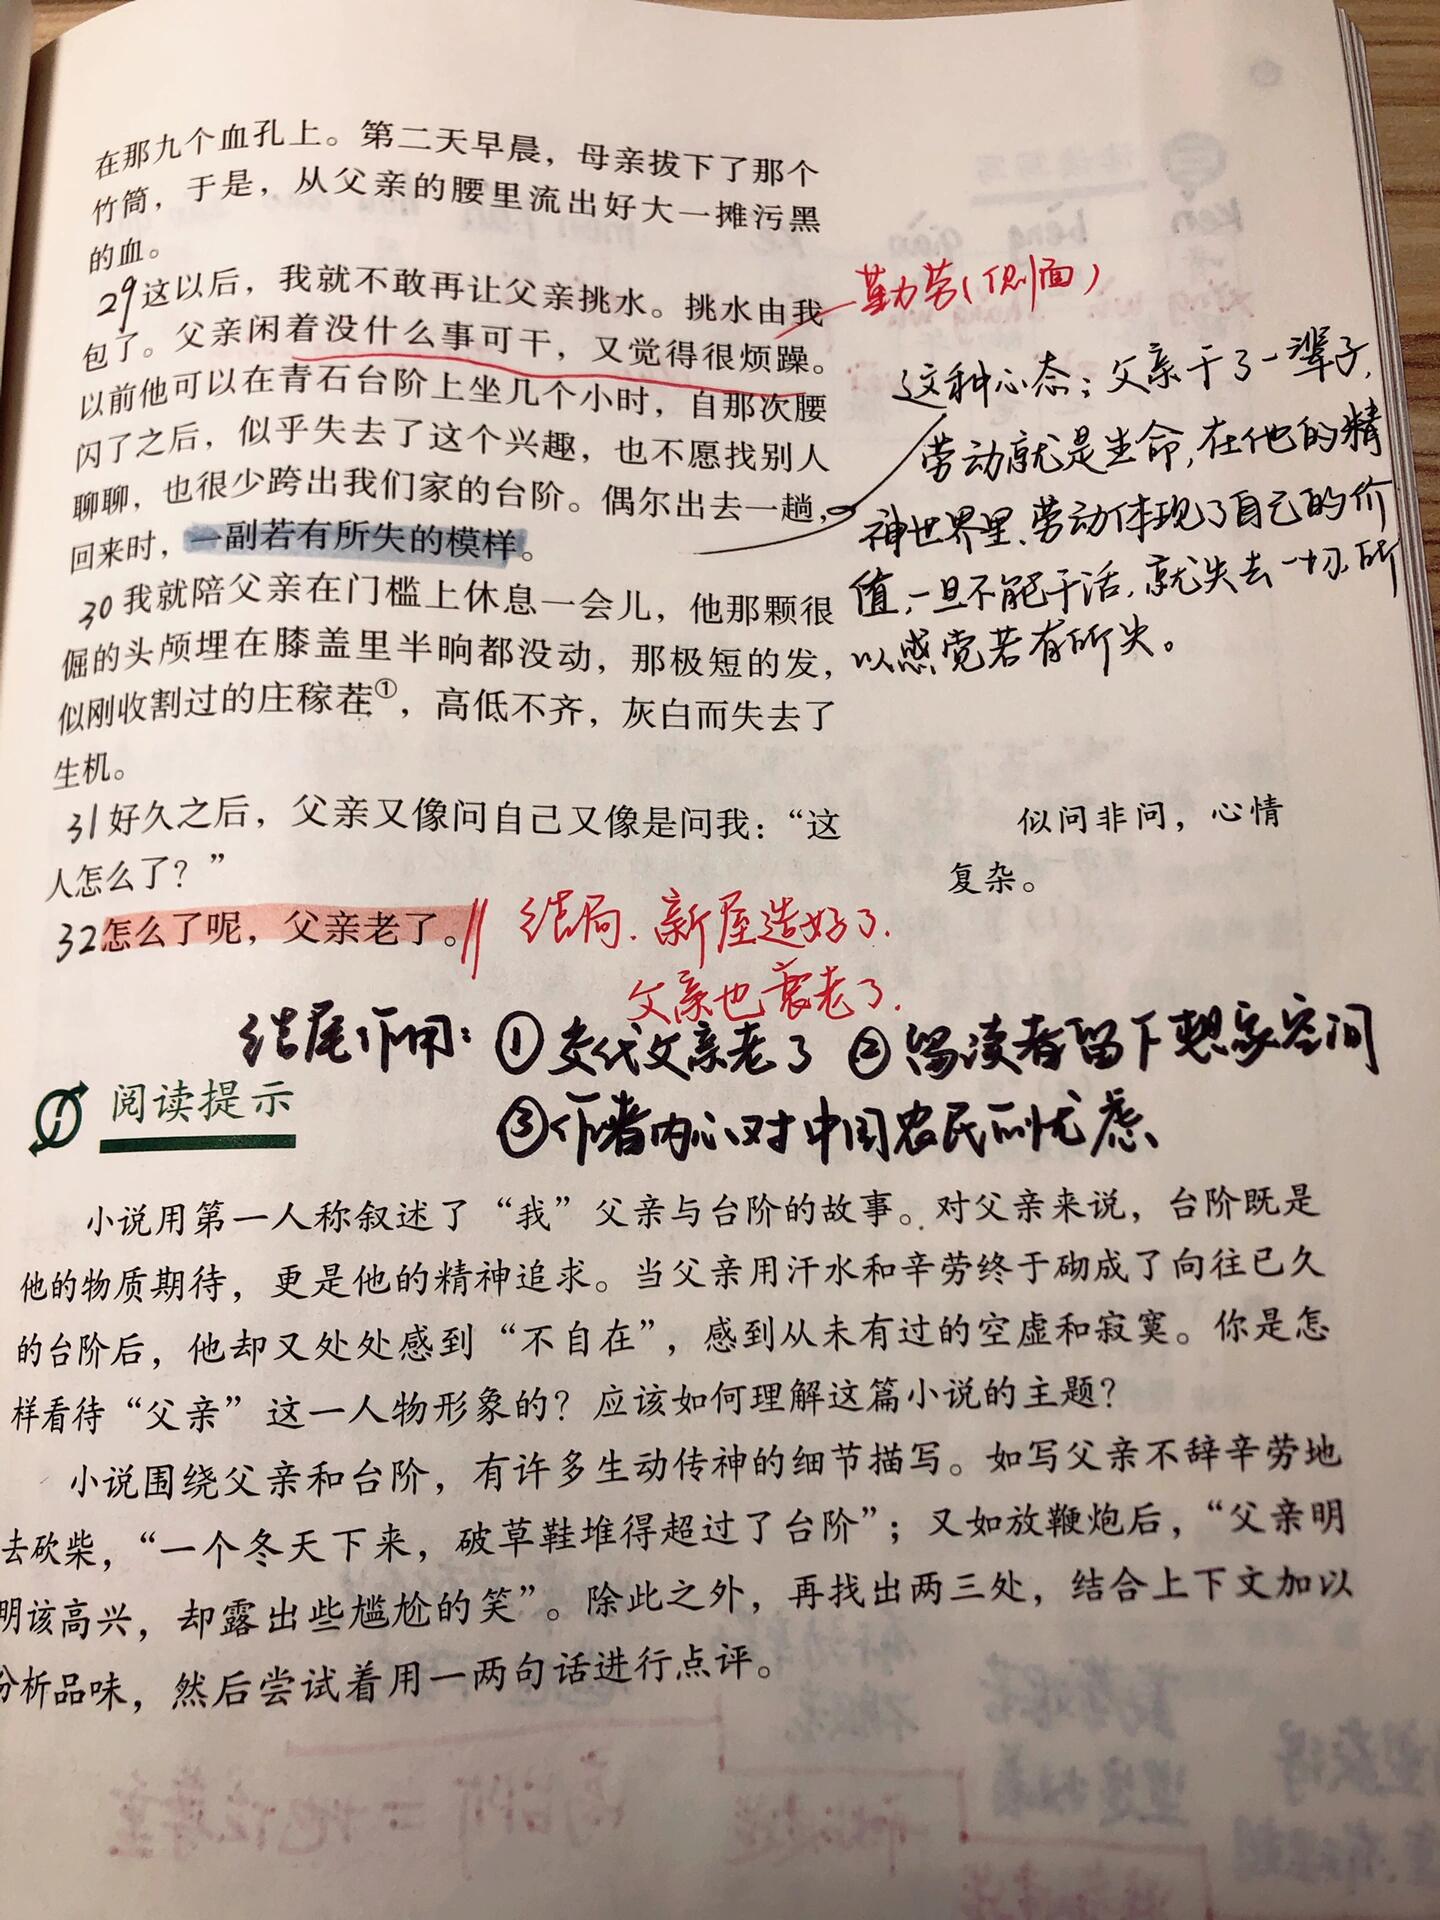 在那九个血孔上。第二天早晨，母亲拔下了那个
竹筒，于是，从父亲的腰里流出好大一摊污黑
的血。
29这以后，我就不敢再让父亲挑水。挑水由我
包了。父亲闲着没什么事可干，又觉得很烦躁。
以前他可以在青石台阶上坐几个小时，自那次腰
闪了之后，似乎失去了这个兴趣，也不愿找别人
聊聊，也很少跨出我们家的台阶。偶尔出去一趟，
回来时，一副若有所失的模样。
勤劳（侧面）
这种心态：父亲干了一辈子，
劳动就是生命，在他的精
神世界里、劳动体现了自己的价
值，一旦不能干活，就失去一切，所
以感觉若有所失。
30我就陪父亲在门槛上休息一会儿，他那颗很
倔的头颅埋在膝盖里半晌都没动，那极短的发，
似刚收割过的庄稼茬①，高低不齐，灰白而失去了
生机。
31好久之后，父亲又像问自己又像是问我：“这
人怎么了？”
似问非问，心情
复杂。
32怎么了呢，父亲老了。
结局.新屋造好了.
父亲也衰老了.
结尾作用：①交代父亲老了 ②留读者留下想象空间
③作者内心对中国农民的忧虑、
阅读提示
小说用第一人称叙述了“我”父亲与台阶的故事。对父亲来说，台阶既是
他的物质期待，更是他的精神追求。当父亲用汗水和辛劳终于砌成了向往已久
的台阶后，他却又处处感到“不自在”，感到从未有过的空虚和寂寞。你是怎
样看待“父亲”这一人物形象的？应该如何理解这篇小说的主题？
小说围绕父亲和台阶，有许多生动传神的细节描写。如写父亲不辞辛劳地
去砍柴，“一个冬天下来，破草鞋堆得超过了台阶”；又如放鞭炮后，“父亲明
明该高兴，却露出些尴尬的笑”。除此之外，再找出两三处，结合上下文加以
分析品味，然后尝试着用一两句话进行点评。